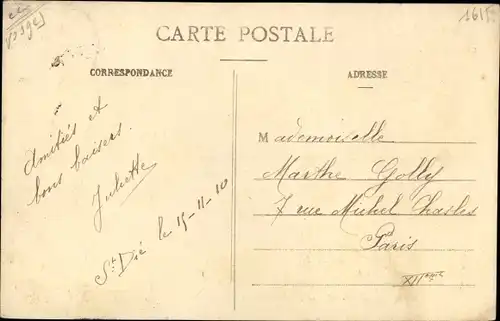 Vosges
1615
CARTE POSTALE
CORRESPONDANCE
ADRESSE
Amitiés et
bons baisers.
Juliette
St. Dié le 15-11-10
Mademoiselle
Marthe Golly
7 rue Michel Chasles
Paris
XIIème